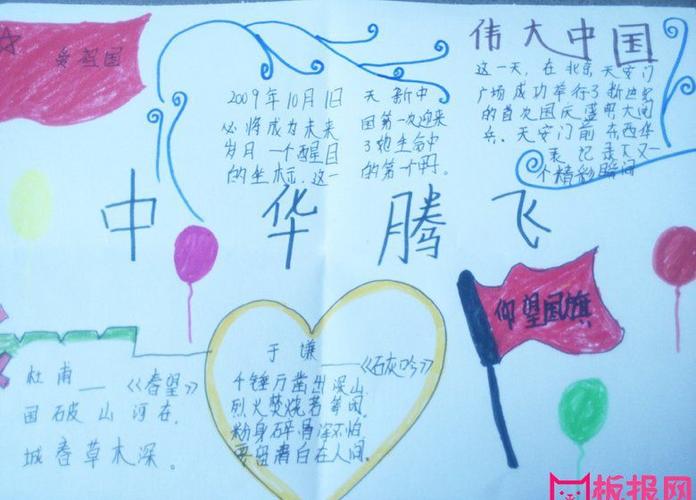 爱祖国
伟大中国
2009年10月1日
必将成为未来
岁月一个醒目
的坐标.这一
天新中
国第一次迎来
了她生命中
的第一个甲.
这一天，在北京天安门
广场成功举行了新世纪
的首次国庆盛明大阅
兵。天安门前东西华
表记录下又一
个精彩瞬间
中华腾飞
仰望国旗
杜甫——《春望》
国破山河在.
城春草木深。
于谦——《石灰吟》
千锤万凿出深山
烈火焚烧若等闲.
粉身碎骨浑不怕
要留清白在人间.
板报网